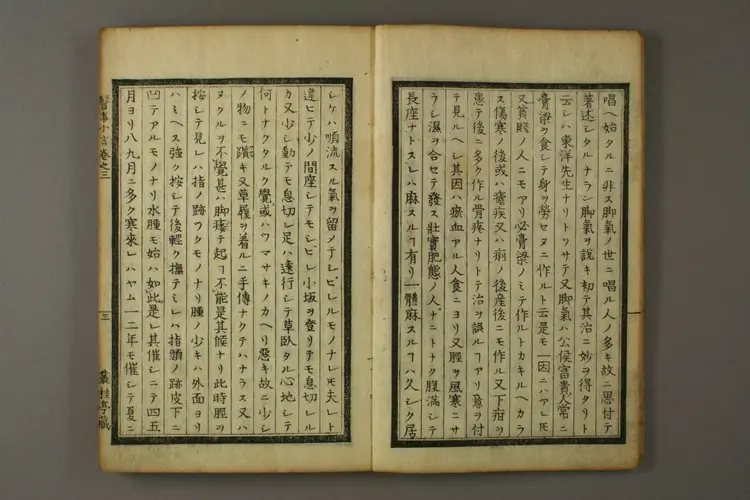 唱ヘ始タルニ非ス脚氣ノ世ニ唱ル人ノ多キ故ニ思付テ
著述シタルナラン脚氣ヲ説キ初テ其治ニ妙ヲ得タリト
云シハ東洋先生ナリトツサテ又脚氣ハ公侯富貴人常ニ
膏梁ヲ食シテ身ヲ勞セヌニ作ルト云是モ一因ニハアレ𪜈
又貧賎ノ人ニモアリ必膏梁ノミテ作ルトカキルヘカラ
ス傷寒ノ後或ハ瘡疾又ハ痢ノ後産後ニモ作ル又下疳ヲ
患テ後ニ多ク作ル骨疼ナリトテ治ヲ誤ルヿアリ意ヲ付
テ見ルヘシ其因ハ瘀血アル人食ニヨリ又脛ヲ風寒ニサ
ラシ濕ヲ合セテ發ス壯實肥態ノ人ナニトナク腹滿シテ
長座ナトスレハ麻スルヿ有リ一體麻スルヿハ久シク居
レケハ順流スル氣ヲ留メテシビレルモノナレ𪜈夫レト
違ヒテ少ノ間座シテモシビレ小坂ヲ登リテモ息切レル
カ又少シ動テモ息切レ足ハ遠行シテ草臥タル心地シテ
何トナクタルク覺或ハワマサキノカヘリ惡キ故ニ少シ
ノ物ニモ躓キ又草履ヲ着ルニ手傳ナクテハナラス又ハ
ヌクルヲ不覺甚ハ脚痿テ起ヿ不能是其候ナリ此時脛ヲ
按シテ見レハ指ノ跡フクモノナリ腫ノ少キハ外面ヨリ
ハミヘス強ク按シテ後輕ク撫テミレハ指頭ノ跡皮下ニ
凹テアルモノナリ水腫モ始ハ如此是レ其催シニテ四五
月ヨリ八九月ニ多ク寒來レハヤム一二年モ催シテ夏ニ
醫事小言卷之三
三
叢桂亭藏